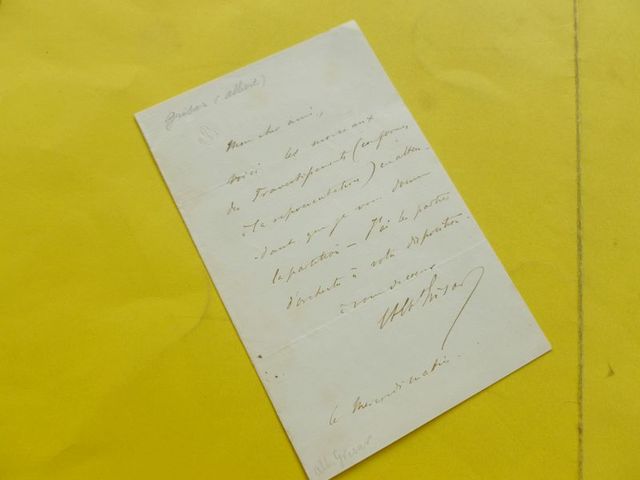 Grisar (albert)
Mon cher ami,
Voici les morceaux
du Travestissements (conforme
à la représentation) en atten-
dant que je vous donne
la partition — J'ai les parties
d'orchestre à votre disposition.
à vous de coeur
Alb Grisar
le mercredi matin.
alb. Grisar